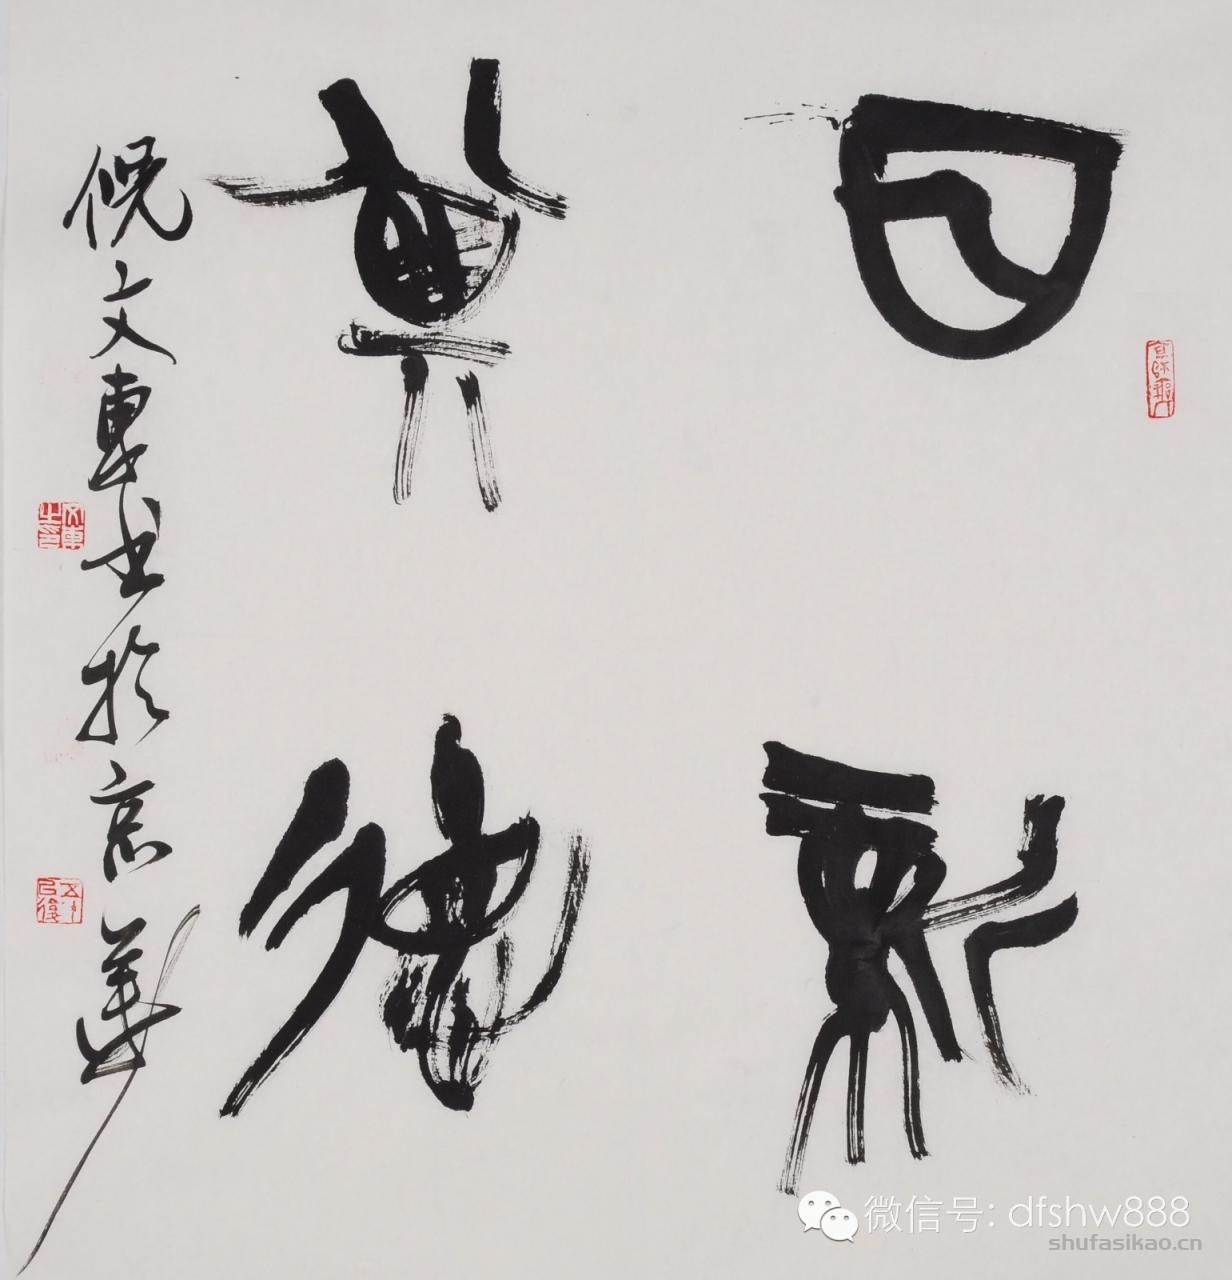 日新
其德
倪文東書於京華
文東之印
五十以後
微信号: dfshw888
shufasikao.cn